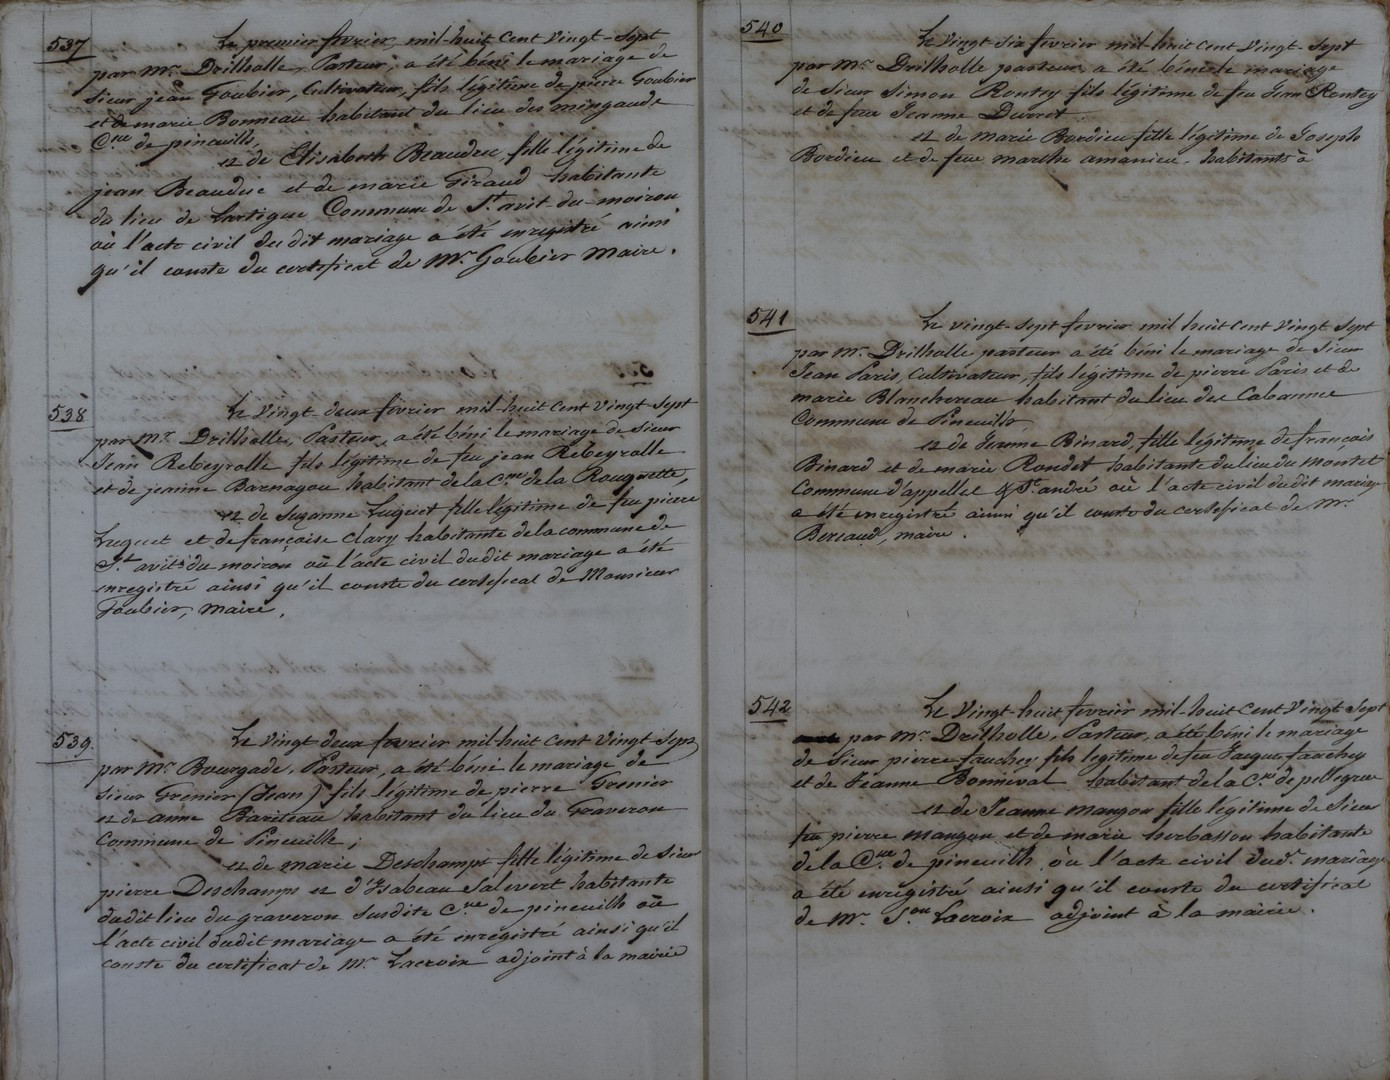 537
Le premier fevrier, mil-huit cent vingt-sept
par Mr. Drilholle, Pasteur, a été béni le mariage de
Sieur jean Goubier, Cultivateur, fils légitime de pierre Goubier
et de marie Bonneau habitant du lieu des mingauds
Cne de pineuilh,
et de Elisabeth Beaudu, fille légitime de
jean Beaudu et de marie Giraud habitante
du lieu de Lartigue Commune de St avit-du-moiron
où l'acte civil du dit mariage a été enregistré ainsi
qu'il conste du certificat de Mr. Goubier Maire.
538
Le Vingt-deux février mil-huit cent vingt-sept
par Mr. Drilholle, Pasteur, a été béni le mariage de Sieur
Jean Rebeyrolle fils légitime de feu jean Rebeyrolle
et de jeanne Barnagou habitant de la Cne de la Rouquette,
et de Suzanne Luquet fille légitime de feu pierre
Luquet et de françoise Clary habitante de la commune de
St. avit du moiron où l'acte civil du dit mariage a été
enregistré ainsi qu'il conste du certificat de Monsieur
Goubier, Maire.
539.
Le Vingt deux fevrier mil-huit cent Vingt-Sept
par Mr Bourgade, Pasteur, a été béni le mariage de
Sieur Grenier (Jean) fils légitime de pierre Grenier
et de anne Bariteau habitant du lieu du Graveron
Commune de Pineuilh;
et de marie Deschamps fille légitime de Sieur
pierre Deschamps et d'Isabeau Salevert habitante
du dit lieu du graveron susdite Cne de pineuilh où
l'acte civil du dit mariage a été enregistré ainsi qu'il
conste du certificat de Mr. Lacroix adjoint à la mairie
540
Le Vingt six fevrier mil-huit cent Vingt-Sept
par Mr Drilholle pasteur, a été béni le mariage
de Sieur Simon Rontey fils légitime de feu Jean Rontey
et de feue Jeanne Duvert
et de Marie Bordieu fille légitime de Joseph
Bordieu et de feue marthe amanieu. habitants à
541
Le vingt-sept fevrier mil huit cent Vingt Sept
par Mr. Drilholle pasteur a été béni le mariage de Sieur
Jean Paris, Cultivateur, fils légitime de pierre Paris et de
marie Blanchereau habitant du lieu des Cabanne
Commune de Pineuilh,
et de Jeanne Binard, fille légitime de françois
Binard et de marie Rondet habitante du lieu du Montet
Commune d'appelles & St. andré où l'acte civil du dit mariage
a été enregistré ainsi qu'il conste du certificat de Mr.
Beriaud, maire.
542
Le Vingt-huit fevrier mil-huit cent Vingt sept
par Mr. Drilholle, Pasteur, a été béni le mariage
de Sieur pierre fauchey fils légitime de feu Jacques fauchey
et de Jeanne Bonneval habitant de la Cne de pellegrue
et de Jeanne Mangon fille légitime de Sieur
feu pierre Mangon et de marie herbasson habitante
de la Cne. de pineuilh où l'acte civil dud. mariage
a été enregistré ainsi qu'il conste du certificat
de Mr. Lacroix adjoint à la mairie.